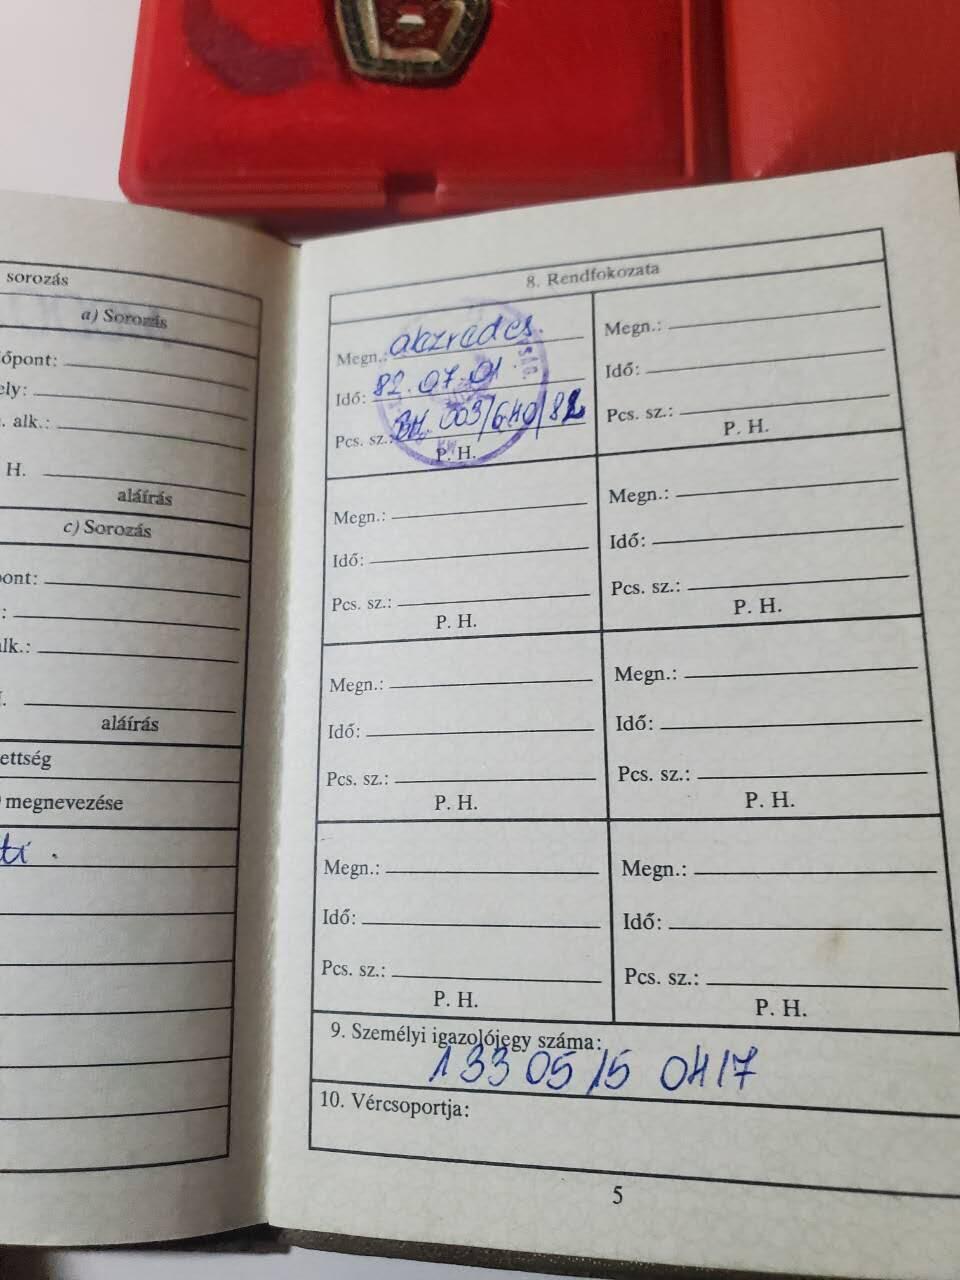 sorozás
a) Sorozás
őpont:
ely:
. alk.:
H.
aláírás
c) Sorozás
ont:
:
lk.:
aláírás
ettség
megnevezése
8. Rendfokozata
Megn.: alezredes.
Idő: 82.07.01.
Pcs. sz.: BM. 003/640/82
P. H.
Megn.:
Idő:
Pcs. sz.:
P. H.
Megn.:
Idő:
Pcs. sz.:
P. H.
Megn.:
Idő:
Pcs. sz.:
P. H.
Megn.:
Idő:
Pcs. sz.:
P. H.
Megn.:
Idő:
Pcs. sz.:
P. H.
Megn.:
Idő:
Pcs. sz.:
P. H.
Megn.:
Idő:
Pcs. sz.:
P. H.
9. Személyi igazolójegy száma:
1 33 05 15 0417
10. Vércsoportja:
5